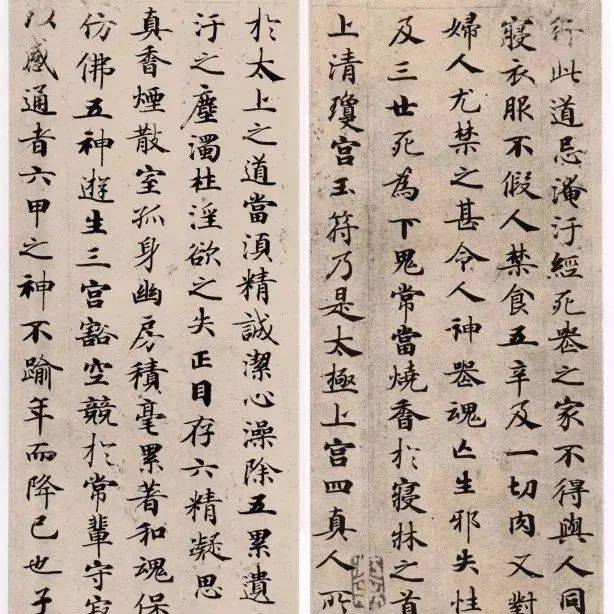 行此道忌淹汙經死喪之家不得與人同
寢衣服不假人禁食五辛及一切肉又對
婦人尤禁之甚令人神喪魂亡生邪失性
及三世死為下鬼常當燒香於寢牀之首
上清瓊宮玉符乃是太極上宮四真人所
於太上之道當須精誠潔心澡除五累遺
汙之塵濁杜淫欲之失正目存六精凝思
真香煙散室孤身幽房積毫累著和魂保
仿佛五神遊生三宮豁空競於常輩守寂
以感通者六甲之神不踰年而降己也子